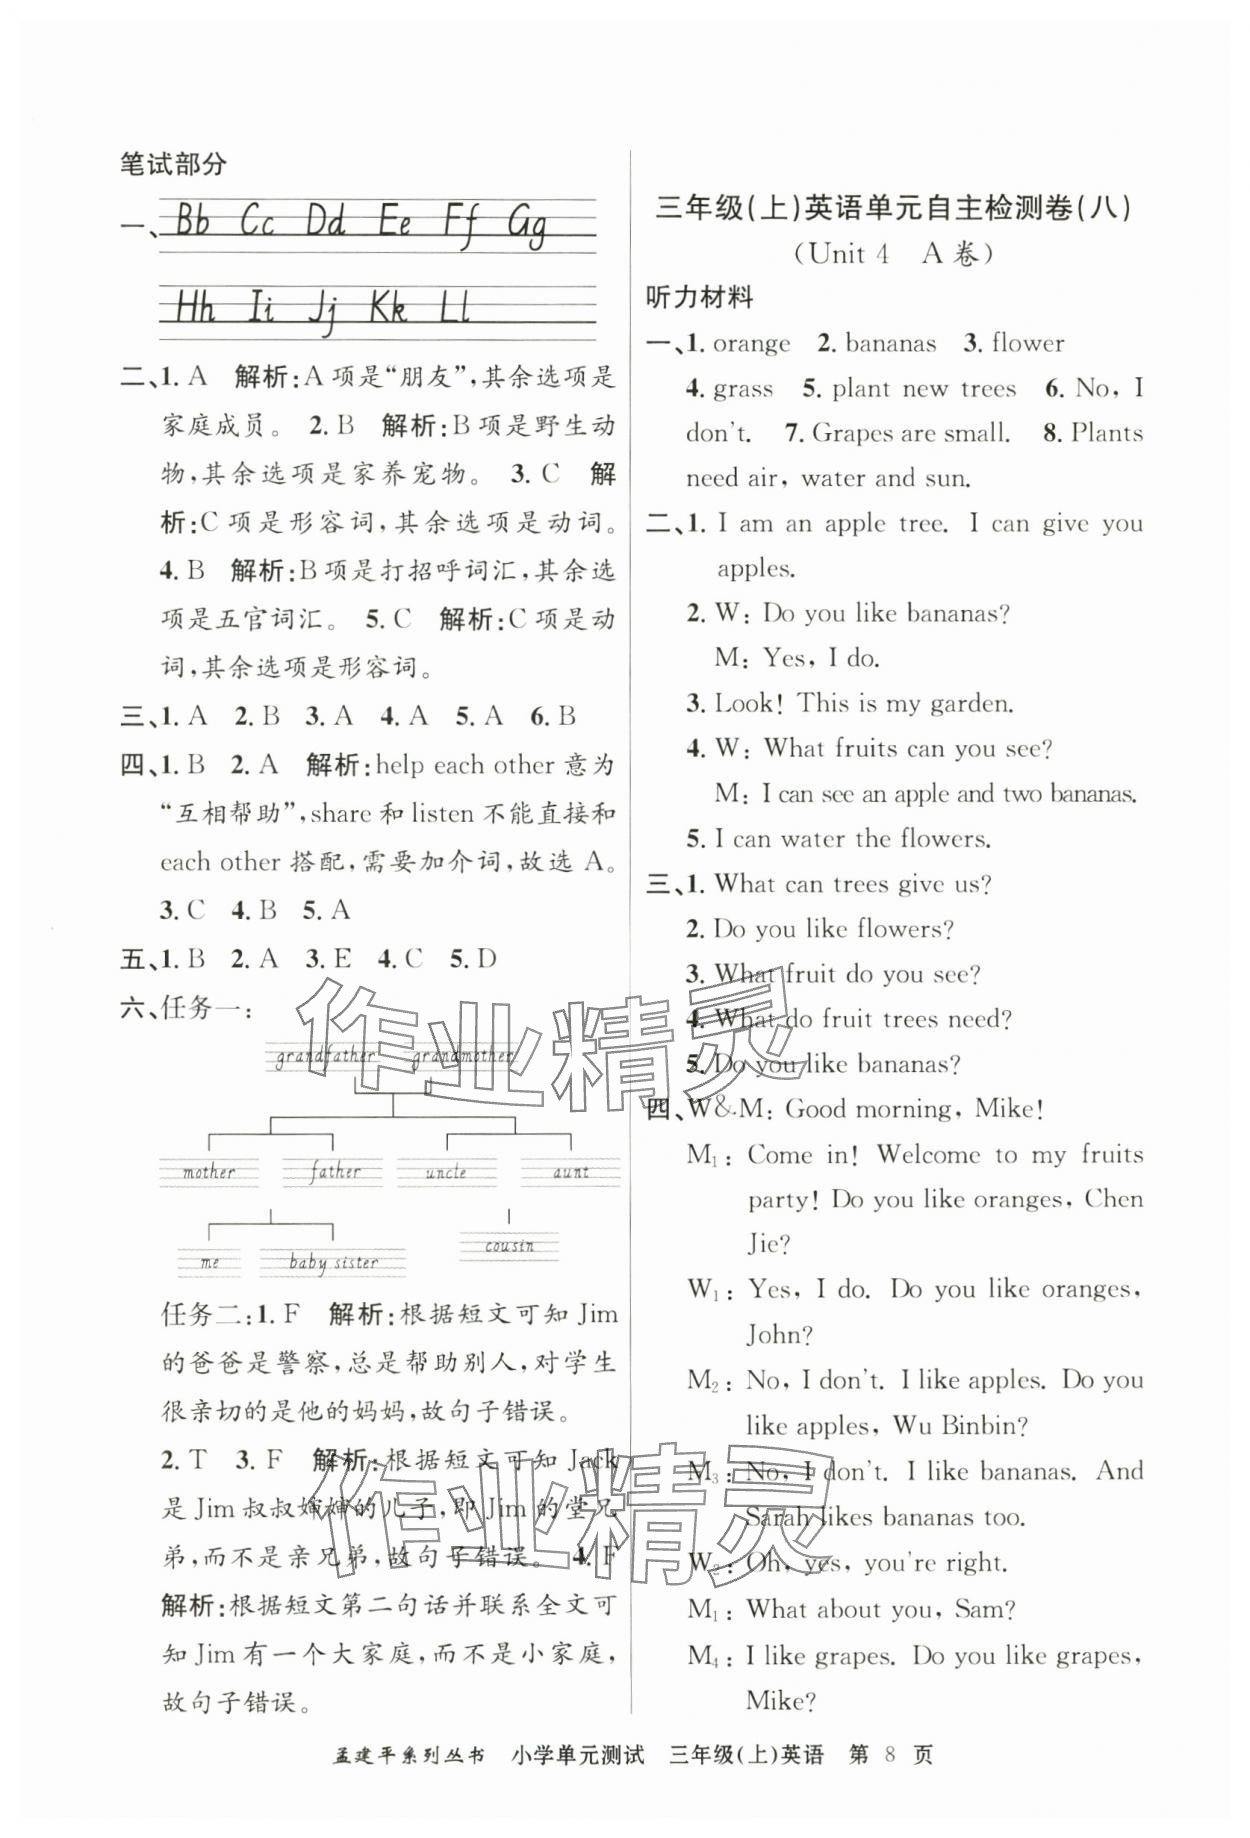 笔试部分
一、Bb Cc Dd Ee Ff Gg
Hh Ii Jj Kk Ll
二、1. A 解析:A 项是“朋友”,其余选项是
家庭成员。 2. B 解析:B 项是野生动
物,其余选项是家养宠物。 3. C 解
析:C 项是形容词,其余选项是动词。
4. B 解析:B 项是打招呼词汇,其余选
项是五官词汇。 5. C 解析:C 项是动
词,其余选项是形容词。
三、1. A 2. B 3. A 4. A 5. A 6. B
四、1. B 2. A 解析:help each other 意为
“互相帮助”,share 和 listen 不能直接和
each other 搭配,需要加介词,故选 A。
3. C 4. B 5. A
五、1. B 2. A 3. E 4. C 5. D
六、任务一:
grandfather grandmother
mother father uncle aunt
me baby sister cousin
任务二:1. F 解析:根据短文可知 Jim
的爸爸是警察,总是帮助别人,对学生
很亲切的是他的妈妈,故句子错误。
2. T 3. F 解析:根据短文可知 Jack
是 Jim 叔叔婶婶的儿子,即 Jim 的堂兄
弟,而不是亲兄弟,故句子错误。 4. F
解析:根据短文第二句话并联系全文可
知 Jim 有一个大家庭,而不是小家庭,
故句子错误。
三年级(上)英语单元自主检测卷(八)
(Unit 4 A 卷)
听力材料
一、1. orange 2. bananas 3. flower
4. grass 5. plant new trees 6. No, I
don't. 7. Grapes are small. 8. Plants
need air, water and sun.
二、1. I am an apple tree. I can give you
apples.
2. W: Do you like bananas?
M: Yes, I do.
3. Look! This is my garden.
4. W: What fruits can you see?
M: I can see an apple and two bananas.
5. I can water the flowers.
三、1. What can trees give us?
2. Do you like flowers?
3. What fruit do you see?
4. What do fruit trees need?
5. Do you like bananas?
四、W&M: Good morning, Mike!
M₁: Come in! Welcome to my fruits
party! Do you like oranges, Chen
Jie?
W₁: Yes, I do. Do you like oranges,
John?
M₂: No, I don't. I like apples. Do you
like apples, Wu Binbin?
M₃: No, I don't. I like bananas. And
Sarah likes bananas too.
W₂: Oh, yes, you're right.
M₁: What about you, Sam?
M₄: I like grapes. Do you like grapes,
Mike?
作业精灵
作业精灵
孟建平系列丛书 小学单元测试 三年级(上)英语 第 8 页